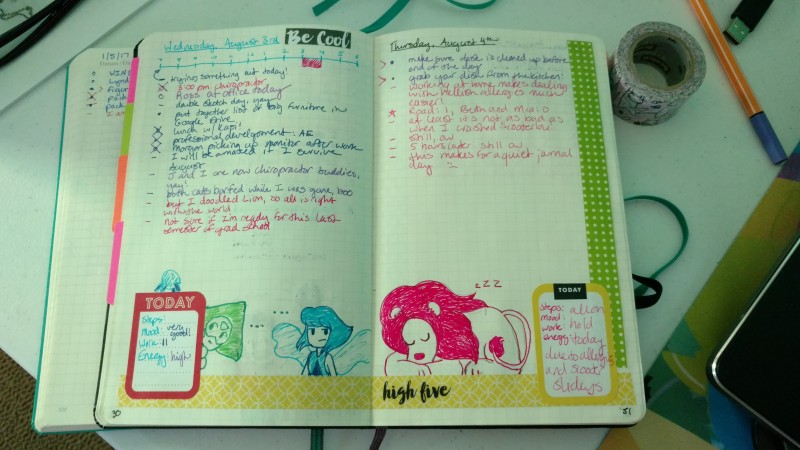 1/5/17
Wednesday, August 3rd
Be Cool
trying something out today!
3:00 pm: chiropractor
Hobs at office today
double sketch day, yay!
put together list of big furniture in
Google Drive
lunch w/ Kapil
professional development: AE
morgan picking up monitor after work
I will be amazed if I survive
August
J and I are now chiropractor buddies,
yay!
both cats barfed while I was gone, boo
but I doodled Lion, so all is right
with the world
not sure if I'm ready for this last
semester of grad school
TODAY
Steps:
Mood: very
good!
Work: 11
Energy: high
30
Thursday, August 4th
make sure desk is cleaned up before
end of the day
grab your dish from the kitchen!
working at home makes dealing
with hellish allergies much
easier!
Road: 1, Beth and Mia: 0
at least it's not as bad as
when I crashed
still, ow
5 hours later: still ow
this makes for a quiet journal
day
zzz
TODAY
Steps: all on
mood: hold
work: today
energy:
due to allergies
and
high five
31